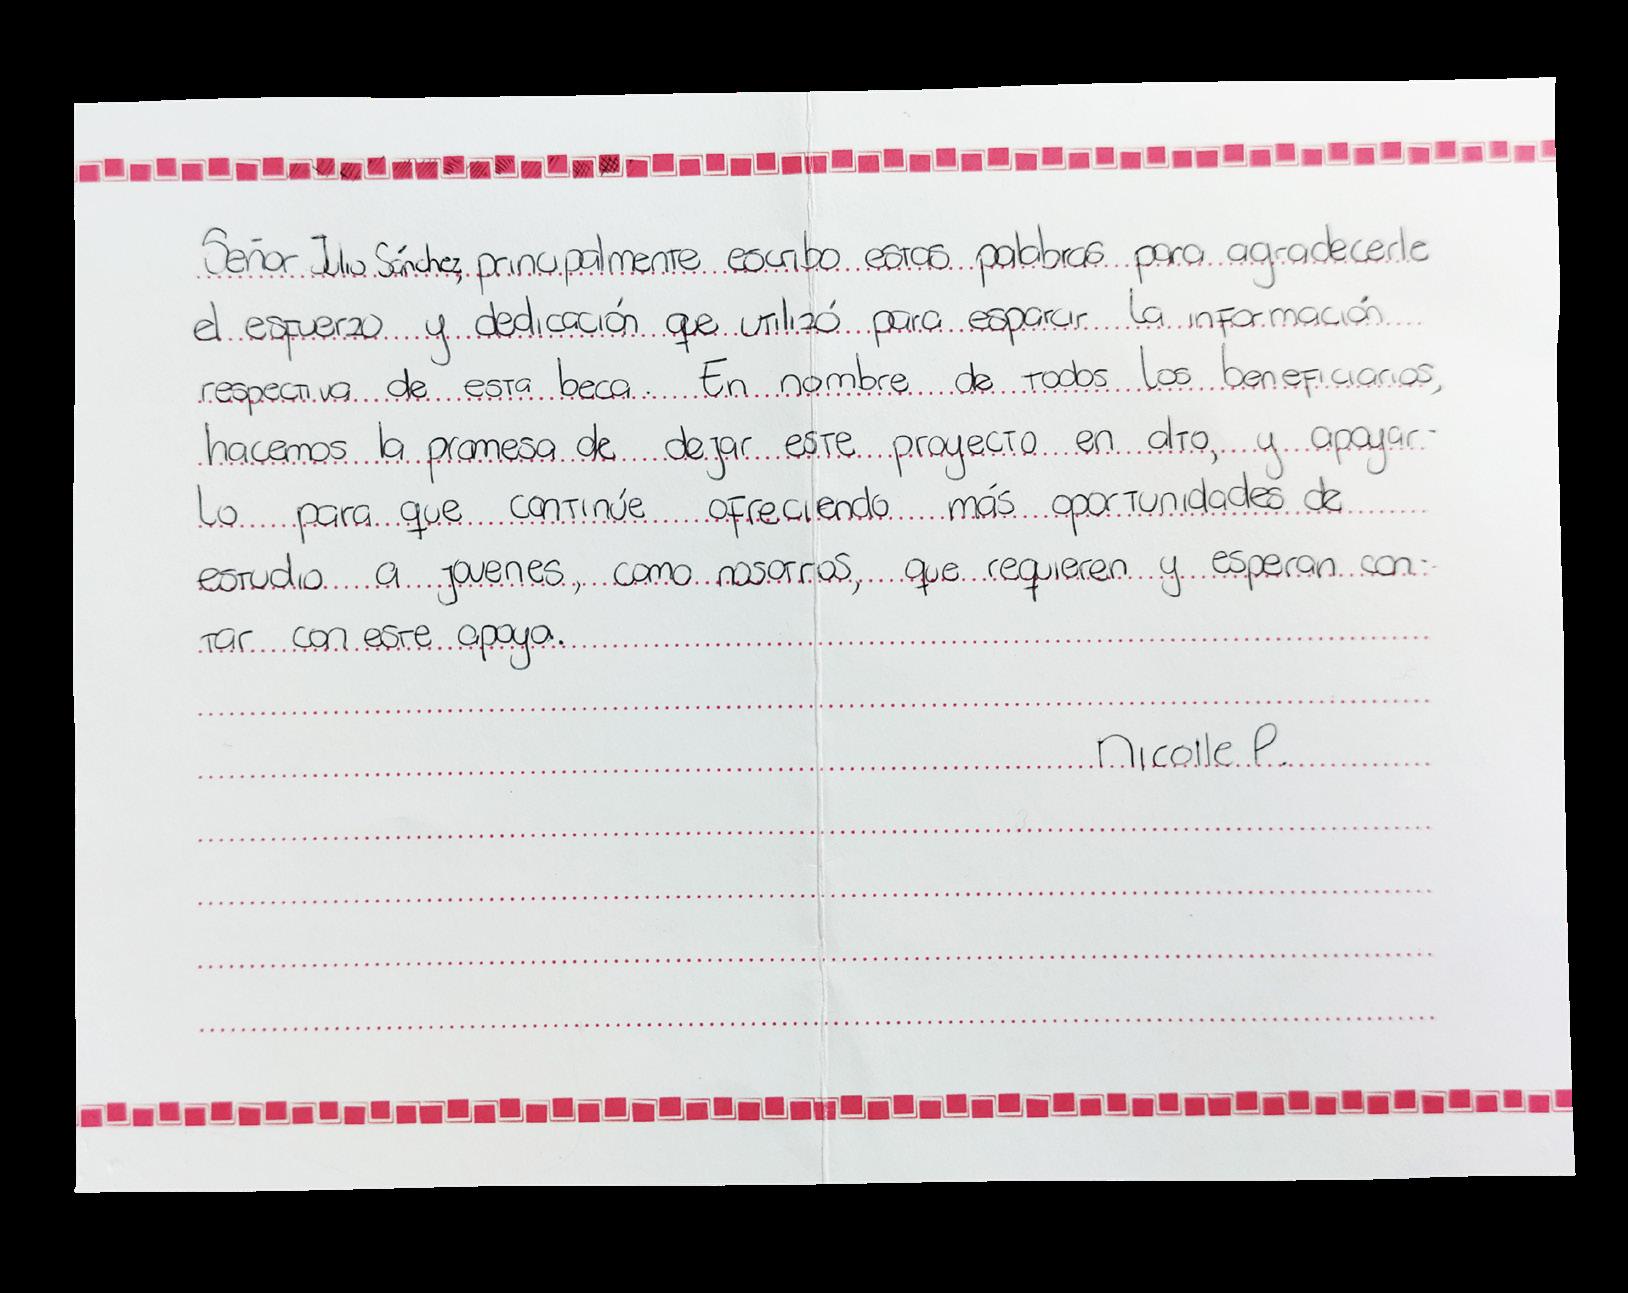 Señor Julio Sánchez, principalmente escribo estas palabras para agradecerle
el esfuerzo y dedicación que utilizó para esparcir la información
respectiva de esta beca. En nombre de todos los beneficiarios,
hacemos la promesa de dejar este proyecto en alto, y apoyar-
lo para que continúe ofreciendo más oportunidades de
estudio a jovenes, como nosotros, que requieren y esperan con-
tar con este apoyo.
Nicolle P.